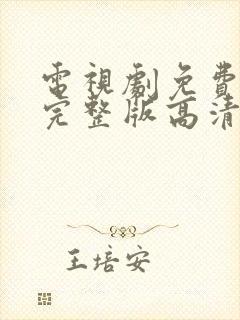 電視劇免費
完整版高清
王培安